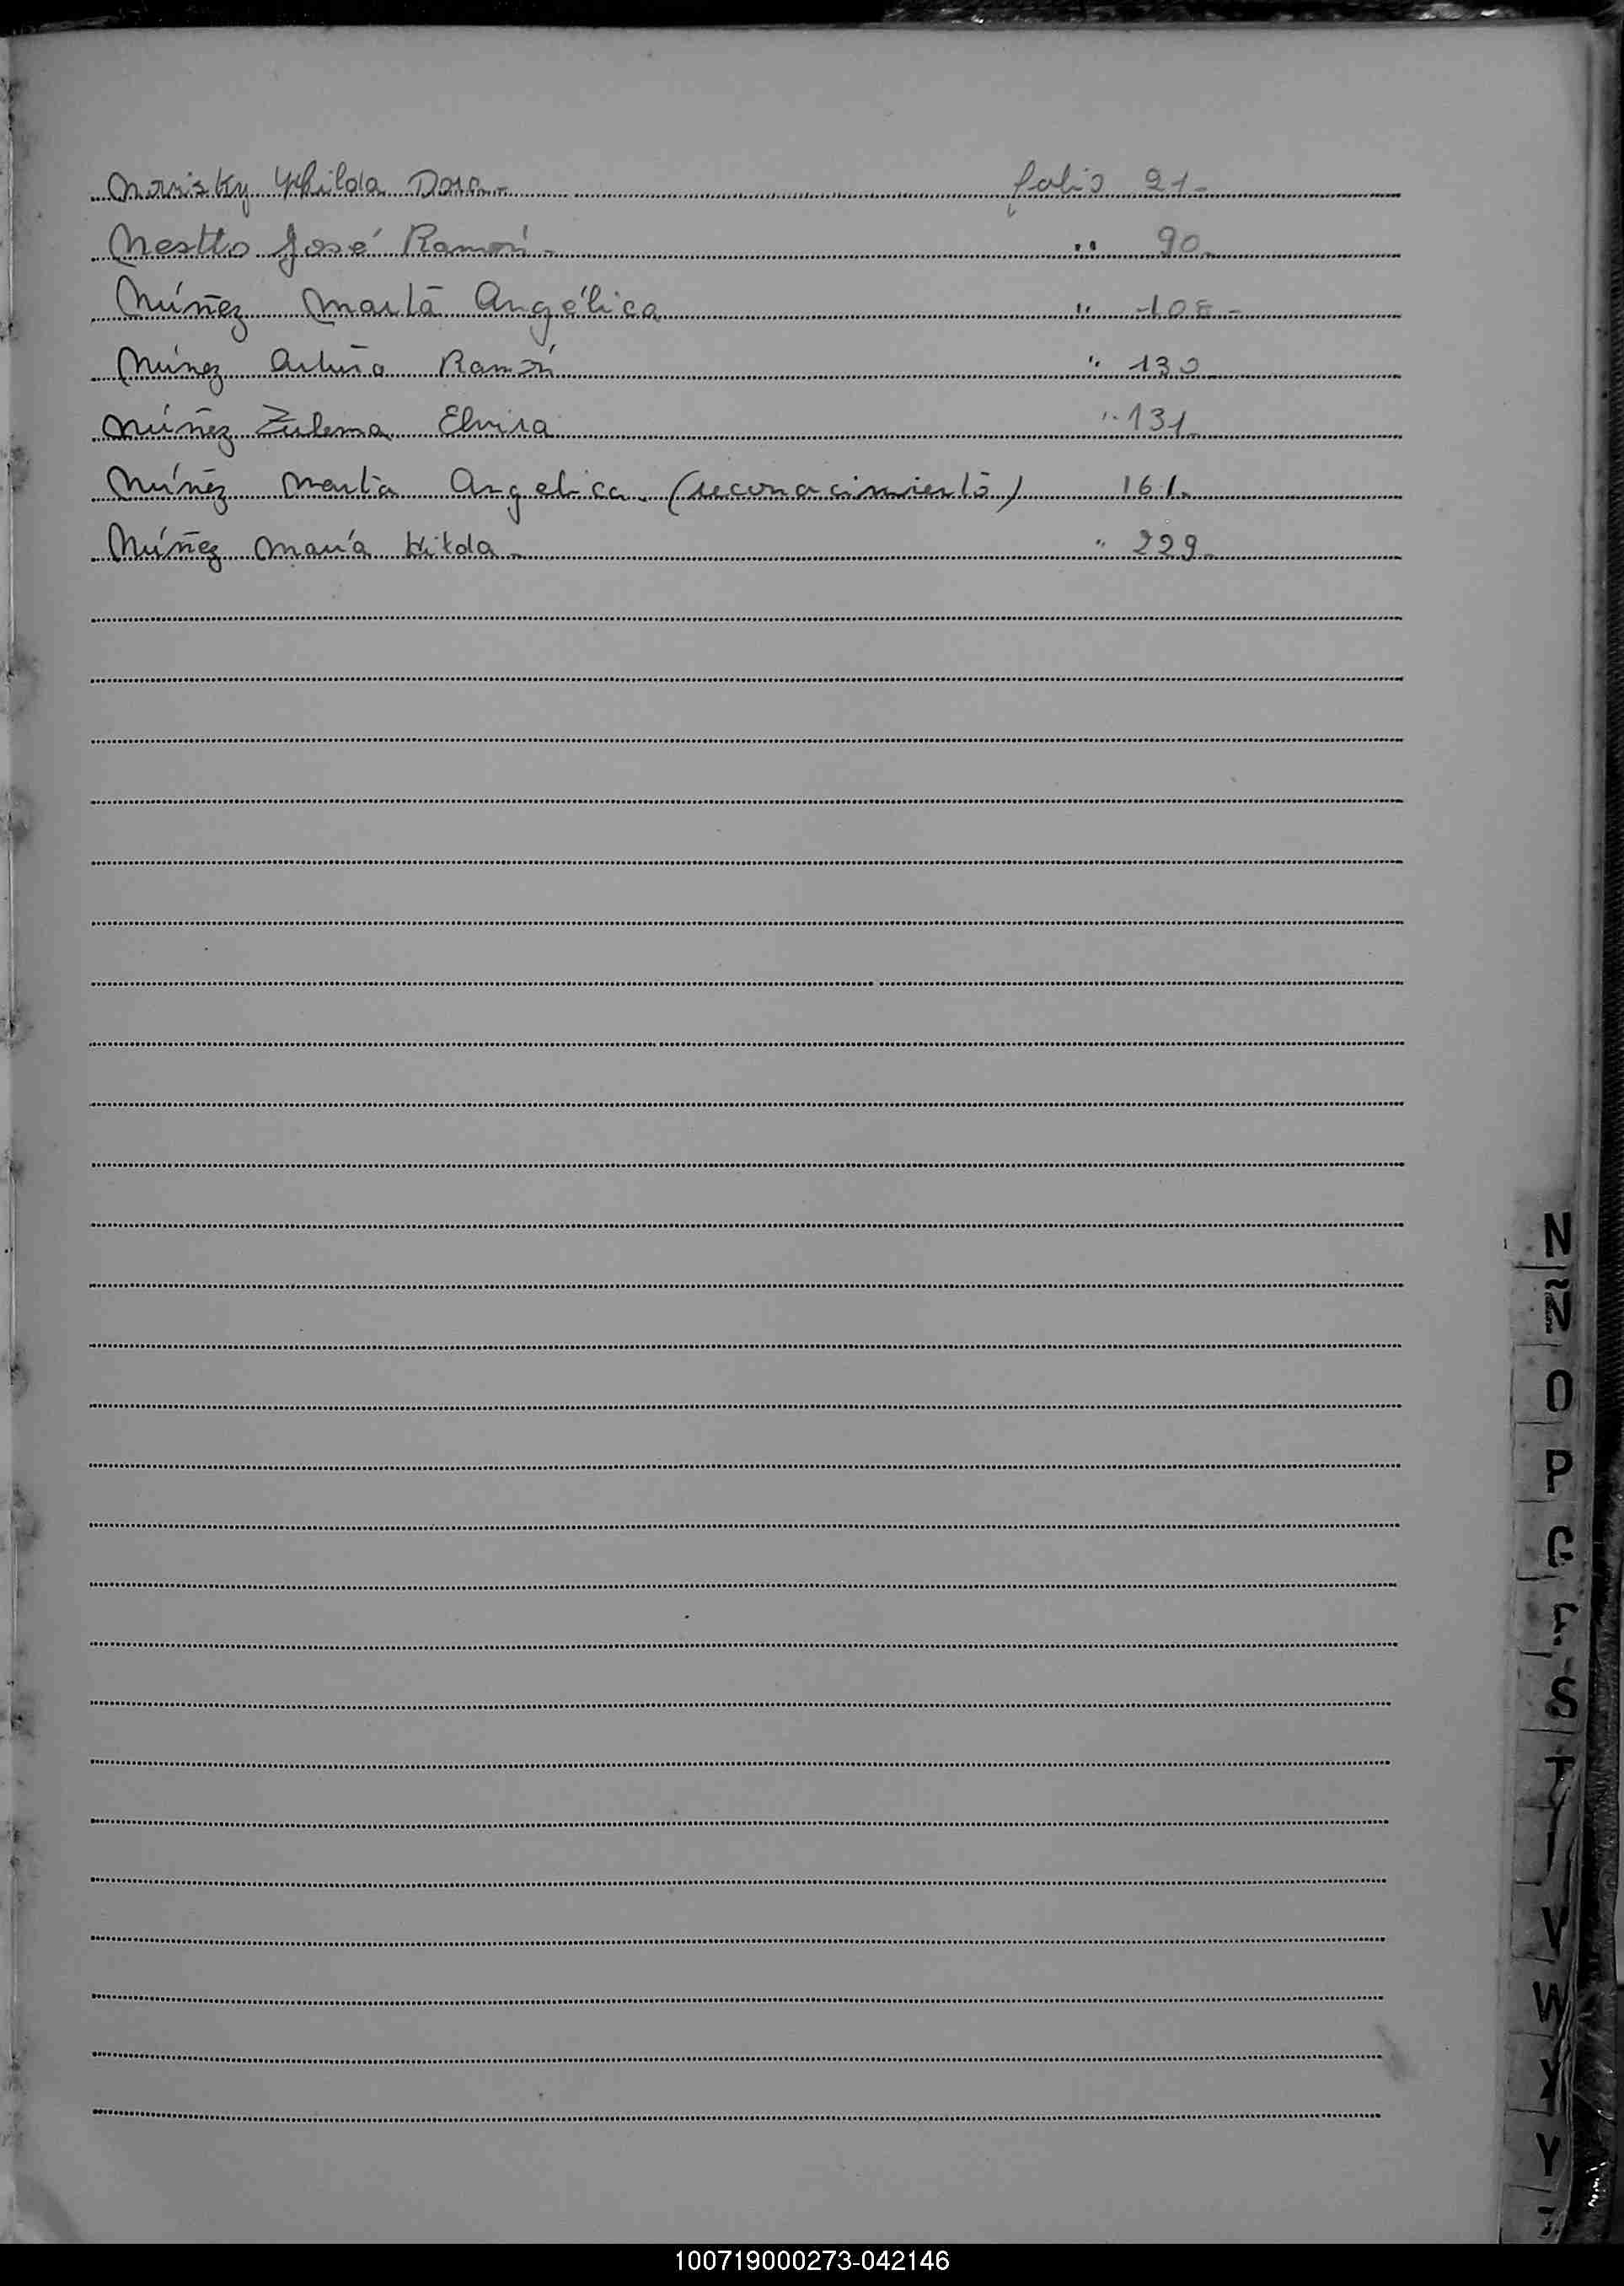 Dora.- folio 21-
José Ramón.- " 90.-
Núñez Marta Angélica " -108-
Núñez Arturo Ramón " 130
Núñez Zulema Elvira " 131.
Núñez Marta Angelica. (reconocimiento) 161.
Núñez María Hilda.- " 229.-
N
Ñ
O
P
S
T
V
W
Y
100719000273-042146